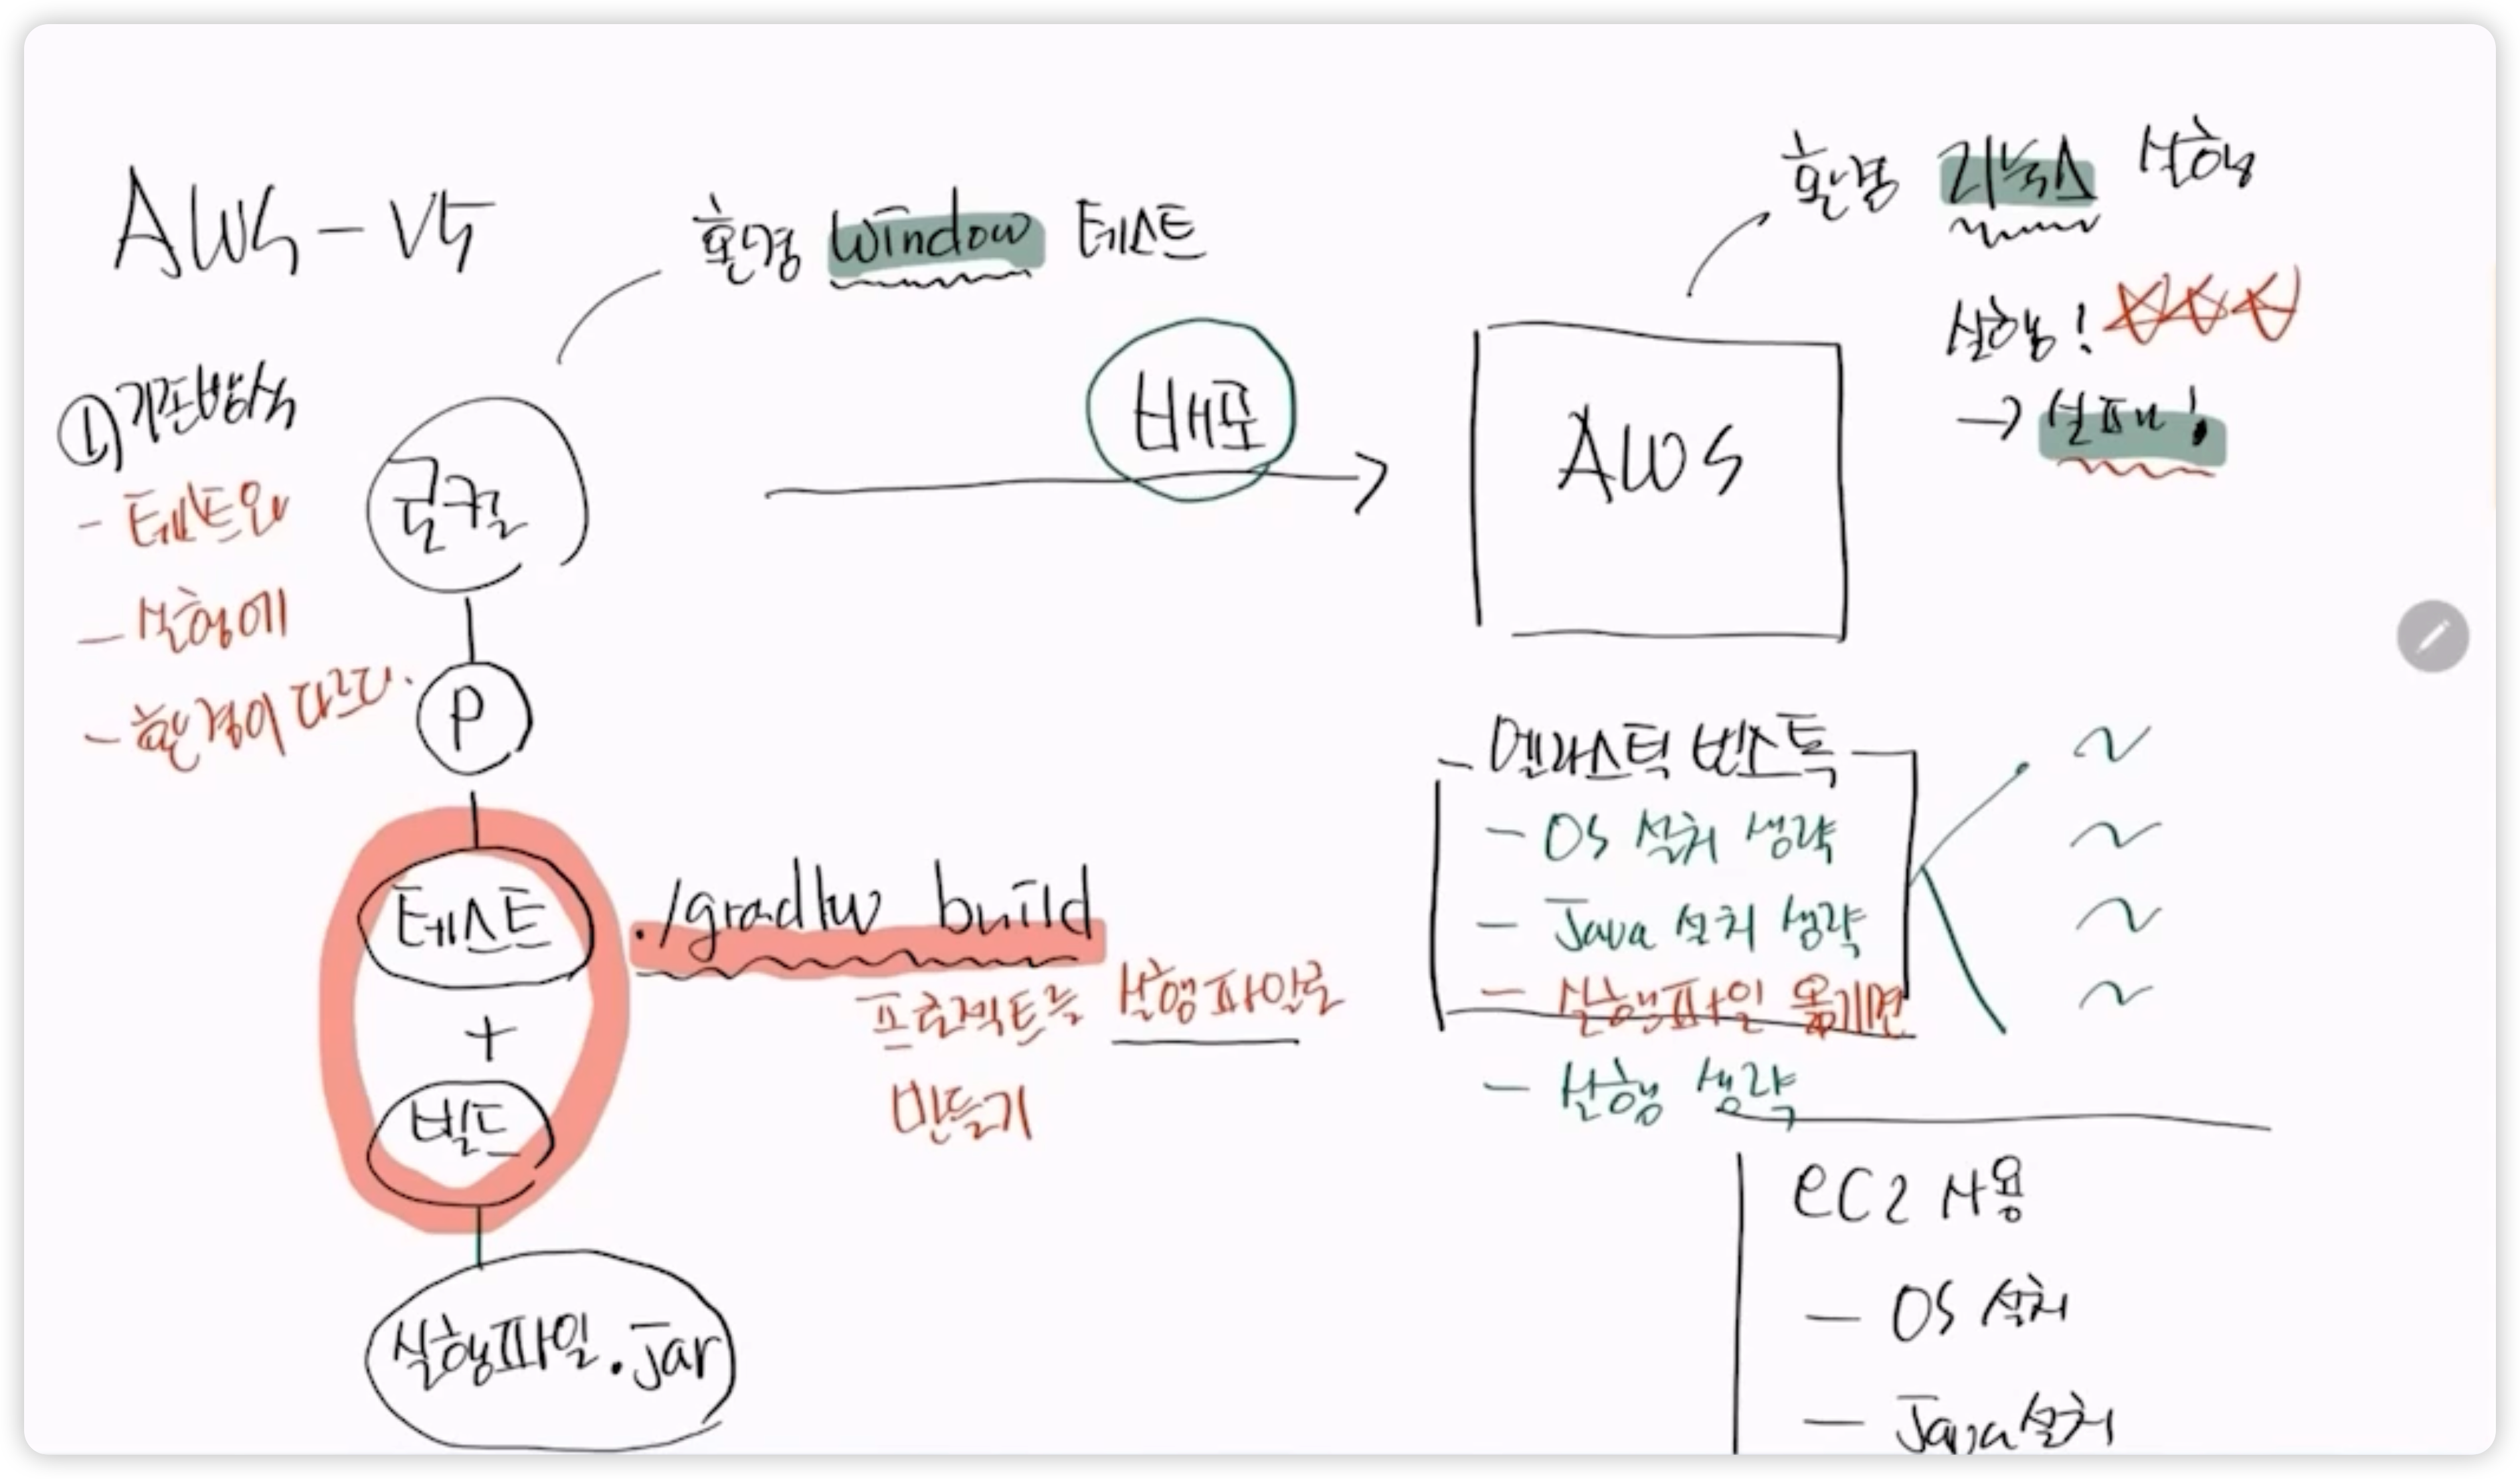 AWS - V5
환경 window 테스트
환경 리눅스 실행
실행!
→ 실패!
① 기존방식
- 테스트와
- 실행에
- 환경이 다르다.
로컬
배포
AWS
P
테스트
+
빌드
./gradlw build
프로젝트를 실행파일로
만들기
실행파일.jar
엘라스틱 빈스톡
- OS 설치 생략
- Java 설치 생략
- 실행파일 옮기면
- 실행 생략
~
~
~
~
eC2 사용
- OS 설치
- Java 설치